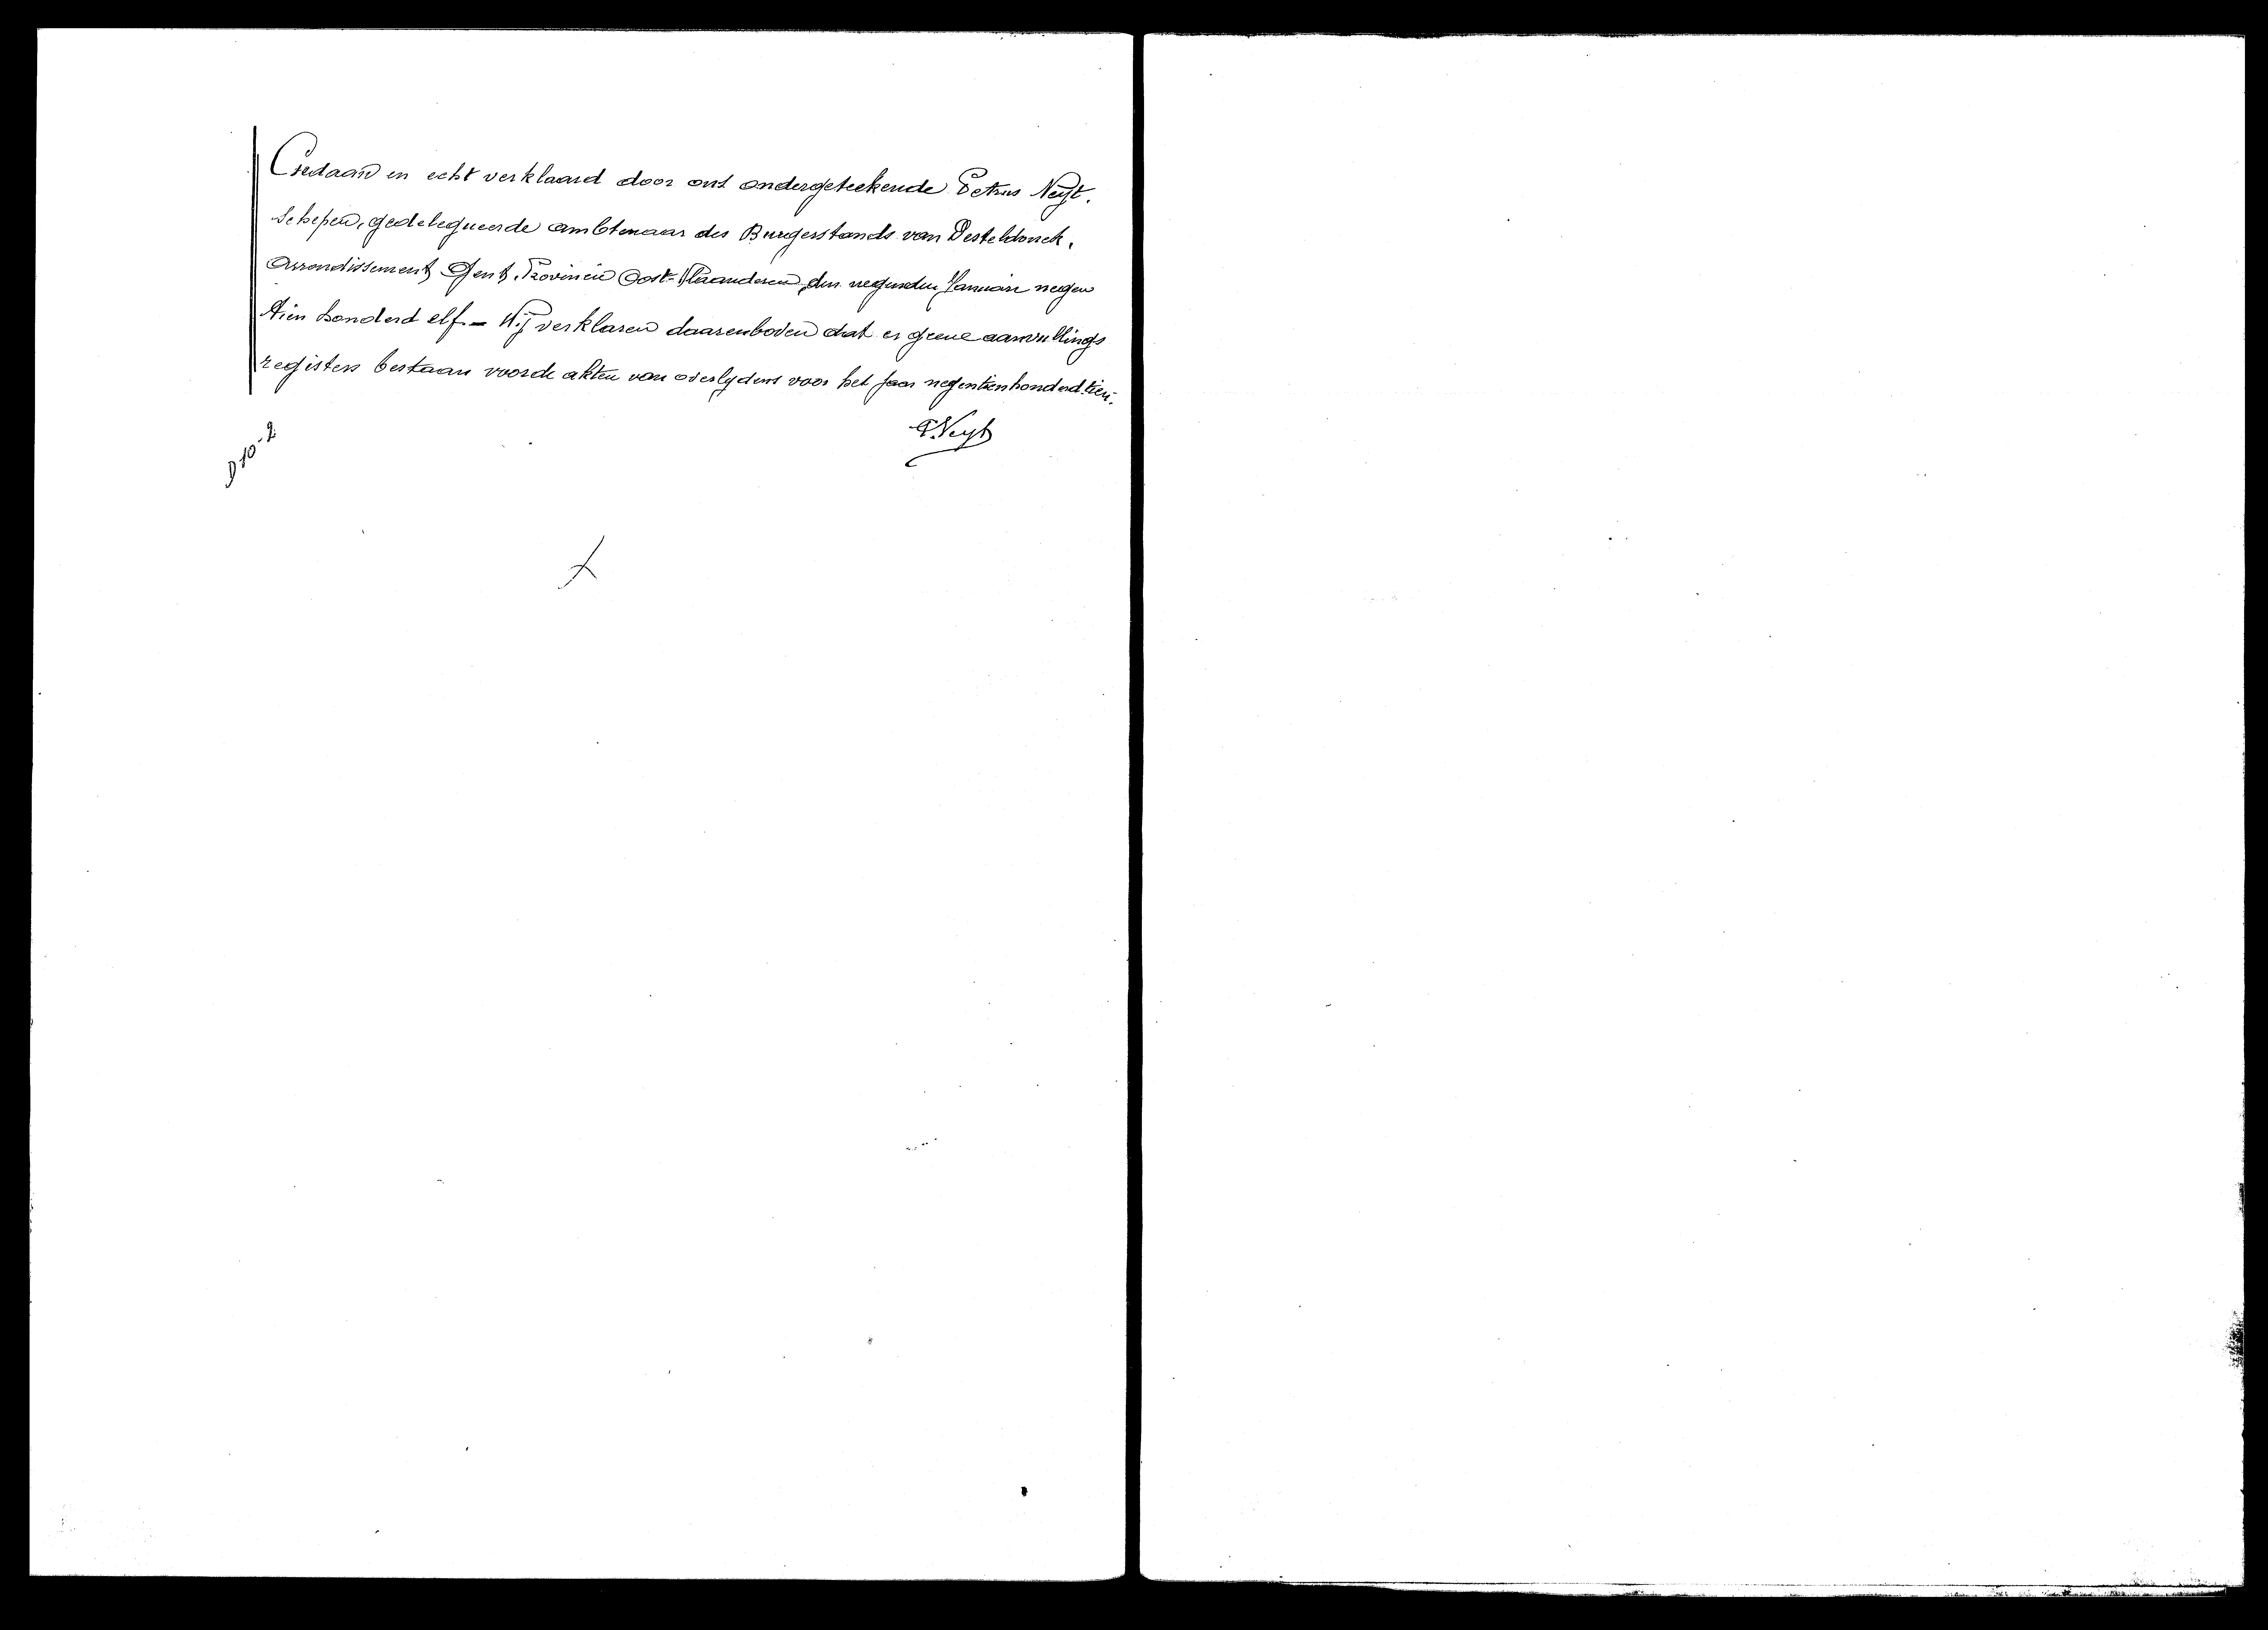 Gedaan en echt verklaard door ons ondergeteekende Petrus Neyt.
Schepen, gedelegueerde ambtenaar des Burgerstands van Desteldonck,
Arrondissement Gent, Provincie Oost-Vlaanderen, den negenden Januari negen
tien honderd elf – Wij verklaren daarenboven dat er geene aanvullings
registers bestaan voor de akten van overlydens voor het jaar negentienhonderd tien.
P. Neyt
D 10-2